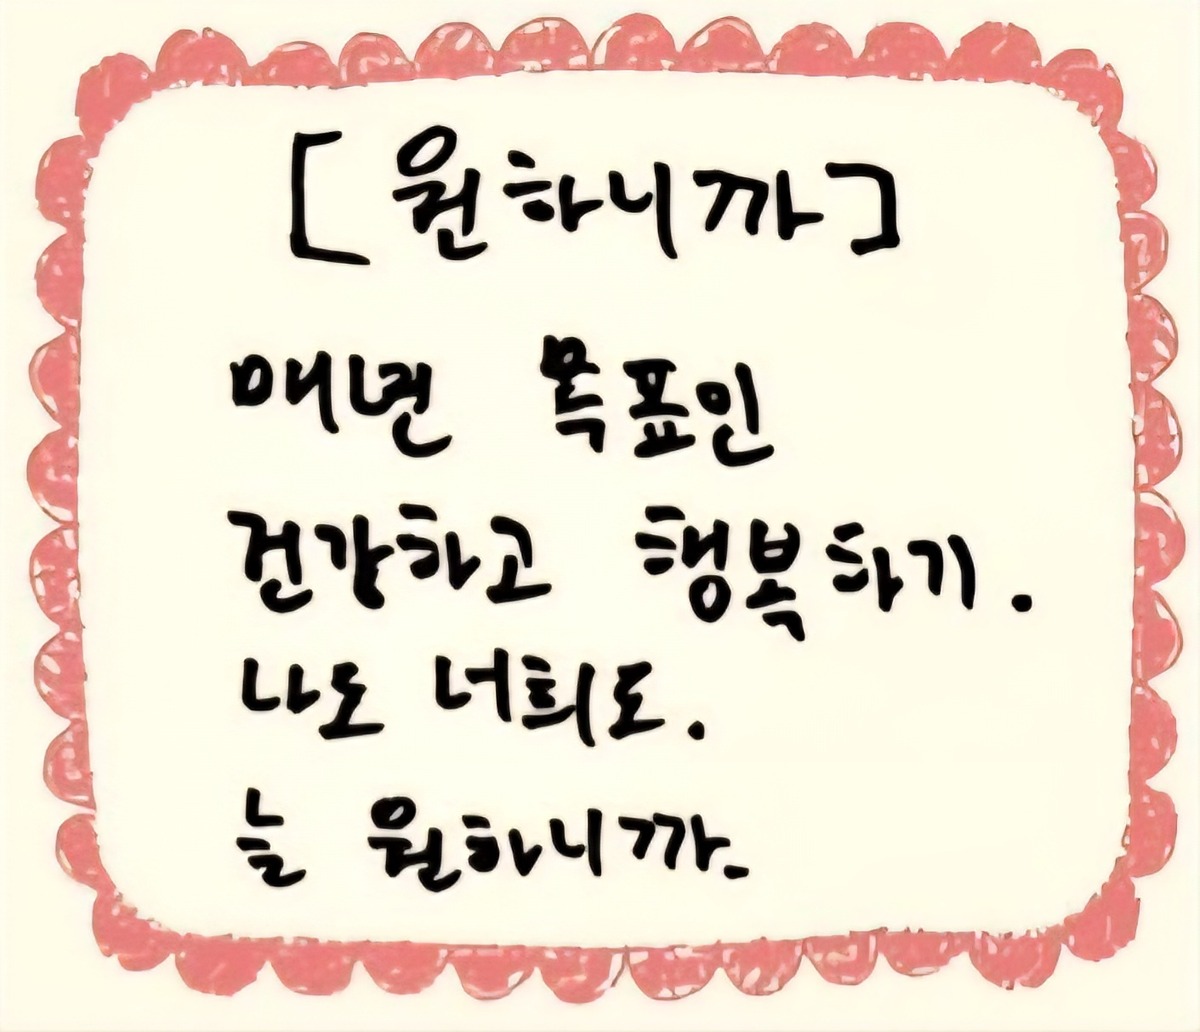 [원하니까]
매년 목표인
건강하고 행복하기.
나도 너희도.
늘 원하니까.